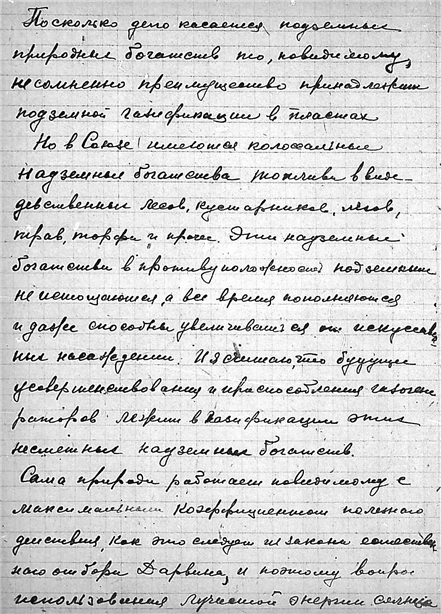 Посколько дело касается подземных
природных богатств то, повидимому,
несомненно преимущество принадлежит
подземной газификации в пластах
Но в Союзе имеются колоссальные
надземные богатства топлива в виде
девственных лесов, кустарников, лугов,
трав, торфа и проч. Эти надземные
богатства в противуположность подземным
не истощаются, а все время пополняются
и даже способны увеличиваться от искусствен
ных насаждений. И я считаю, что будущее
усовершенствования и приспособления газогене
раторов лежит в газификации этих
несметных надземных богатств.
Сама природа работает повидимому с
максимальным коэффициентом полезного
действия, как это следует из закона естествен
ного отбора Дарвина, и поэтому вопрос
использования лучистой энергии солнца